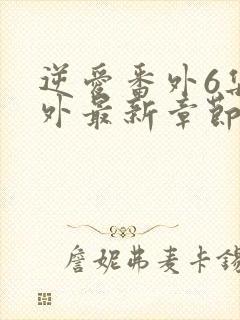 逆愛番外6集
外最新章節
詹妮弗麦卡錫